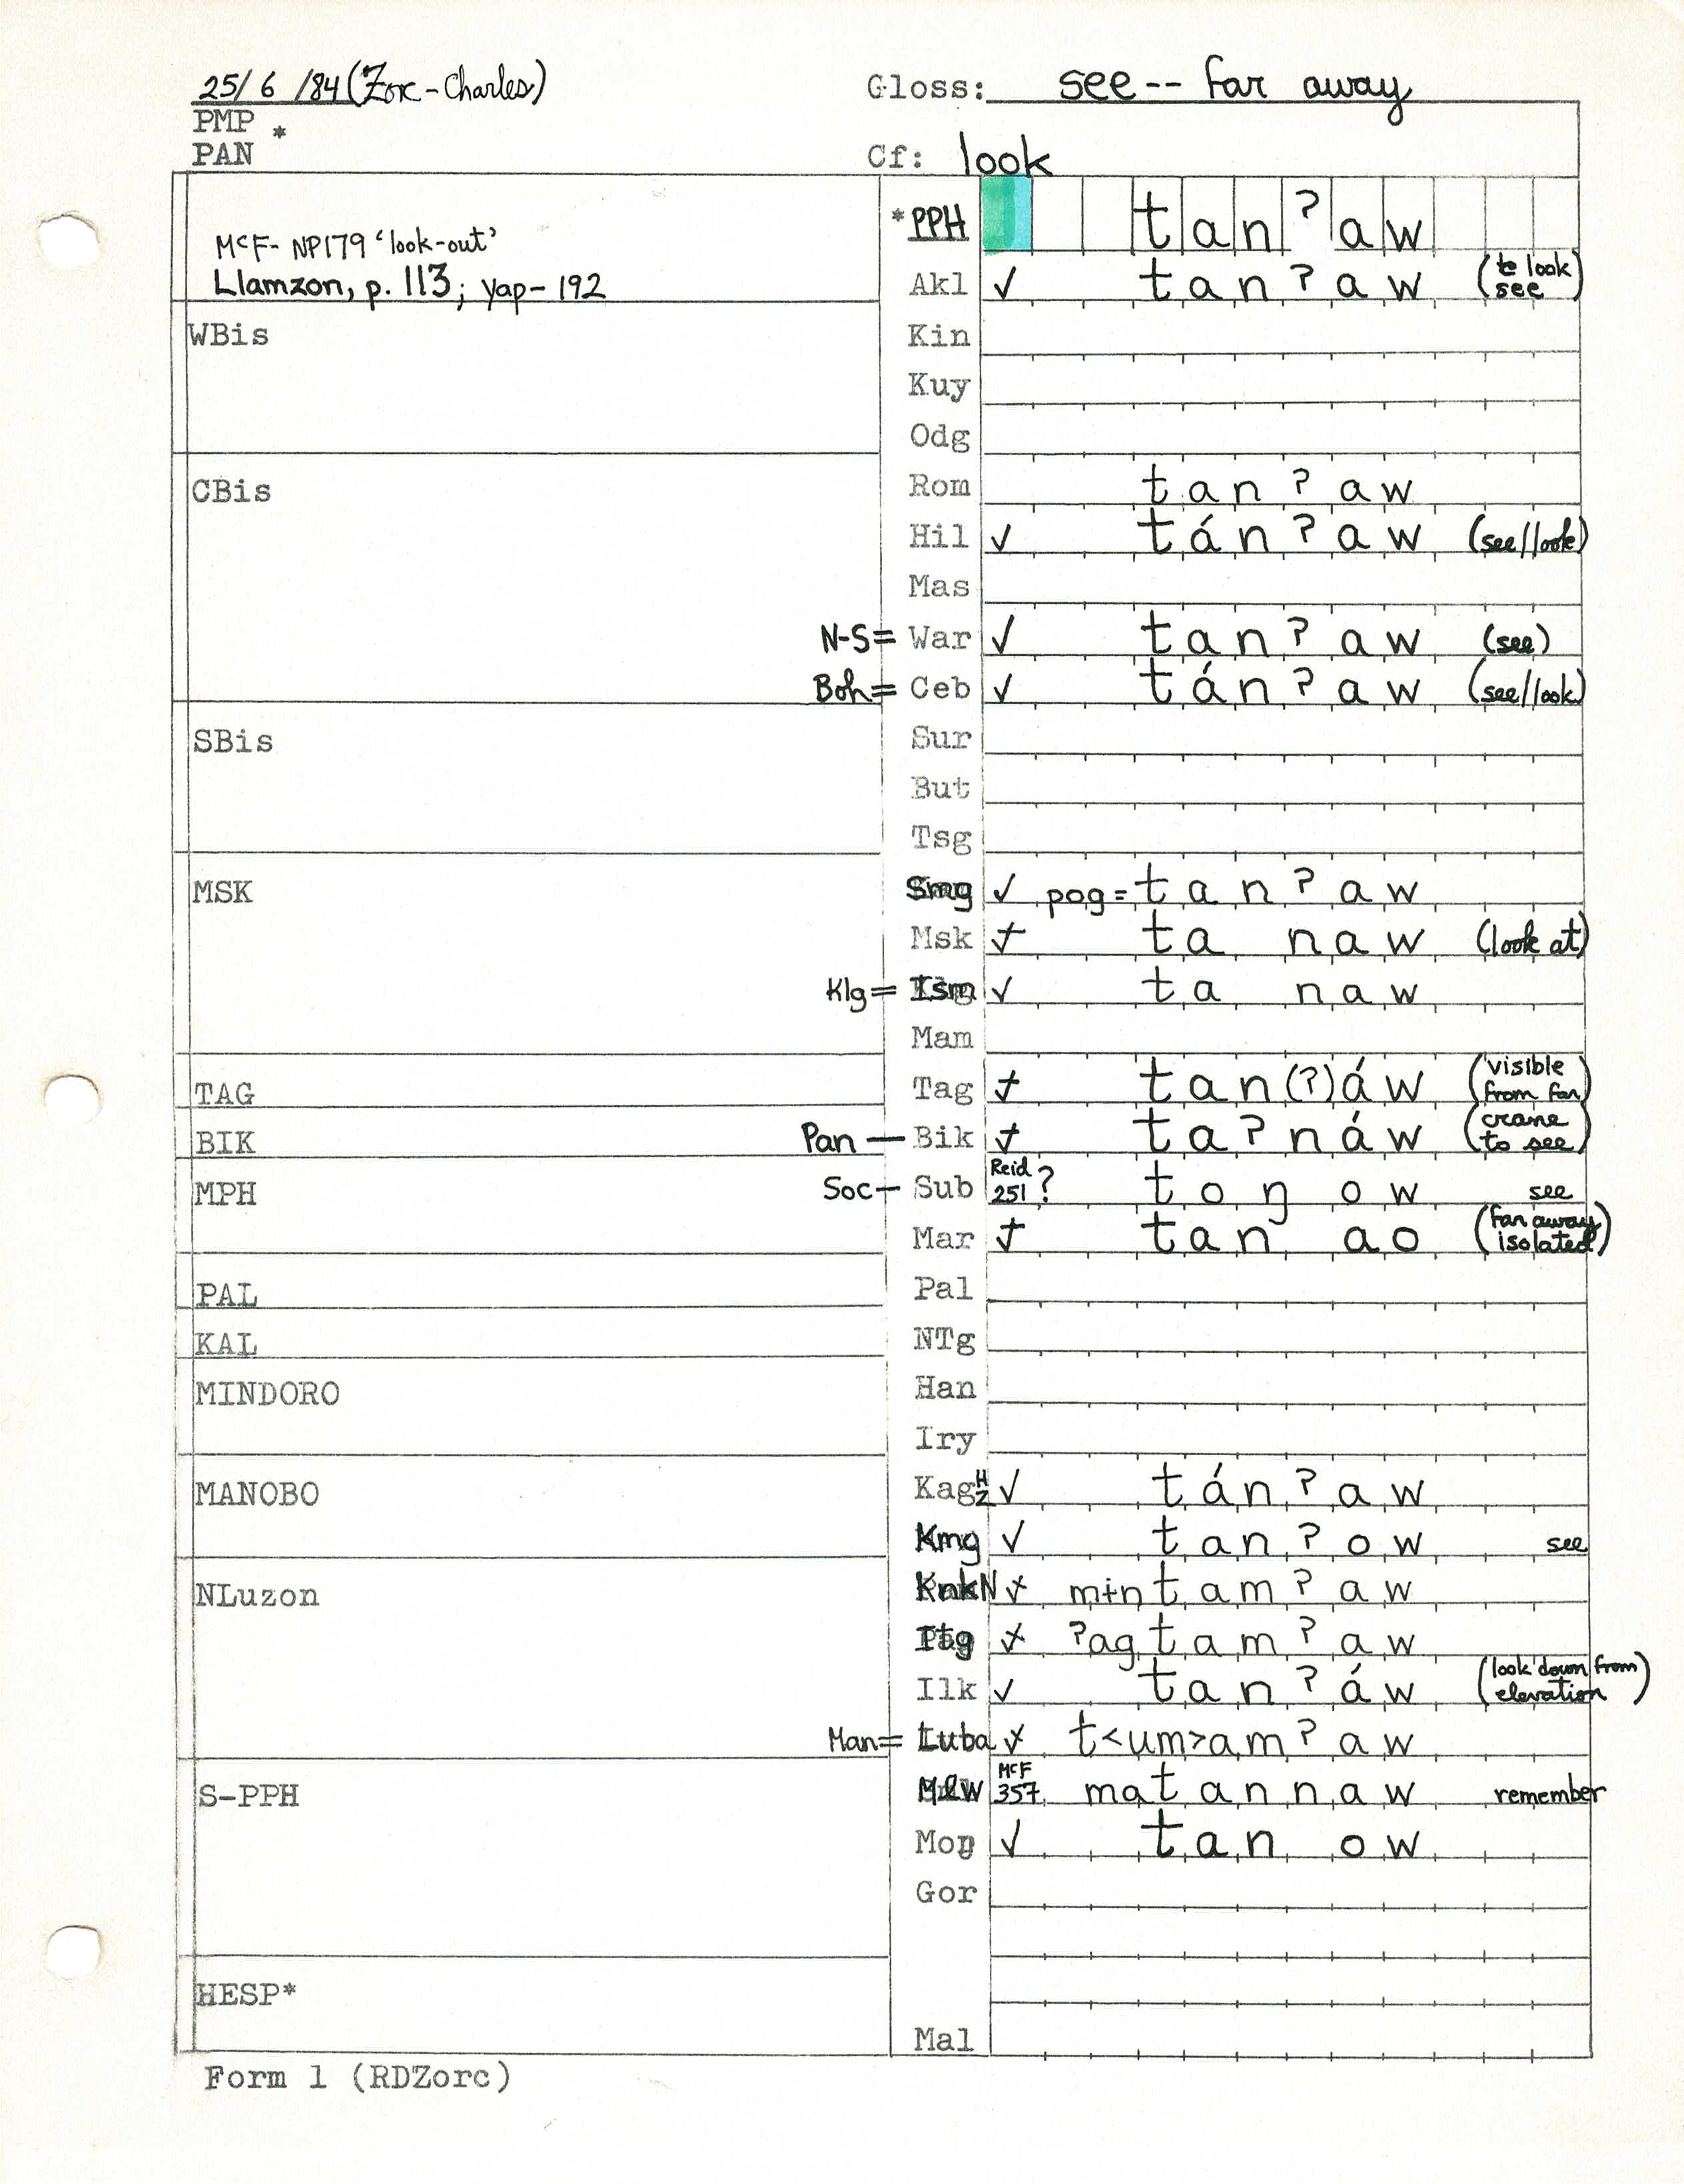 25/ 6 /84 (Zorc-Charles)
Gloss: see -- far away
PMP *
PAN
Cf: look
McF- NP179 ‘look-out’
Llamzon, p. 113; yap- 192
*PPH tan?aw
Akl ✓ tan?aw (to look see)
WBis
Kin
Kuy
Odg
CBis
Rom tan?aw
Hil ✓ tán?aw (see//look)
Mas
N-S= War ✓ tan?aw (see)
Boh= Ceb ✓ tán?aw (see//look)
SBis
Sur
But
Tsg
MSK
Smg ✓ pog= tan?aw
Msk ta naw (look at)
Klg= Ism ✓ ta naw
Mam
TAG
Tag tan(?)áw (visible from far)
BIK
Pan — Bik ta?náw (crane to see)
MPH
Soc — Sub Reid 251 ? toŋ ow see
Mar tan ao (far away isolated)
PAL
Pal
KAL
NTg
MINDORO
Han
Iry
MANOBO
Kag H Z ✓ tán?aw
Kmg ✓ tan?ow see
NLuzon
KnkN mɨn tam?aw
Itg ?ag tam?aw
Ilk ✓ tan?áw (look down from elevation)
Man= Luba t<um>am?aw
S-PPH
MlW McF 357 ma tannaw remember
Moŋ ✓ tan ow
Gor
HESP*
Mal
Form 1 (RDZorc)